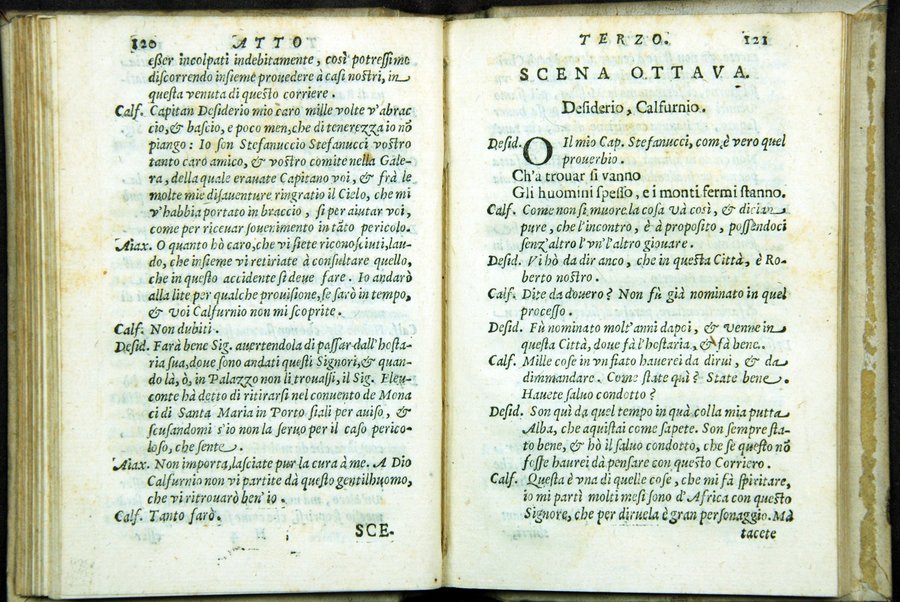 120 ATTO
eßer incolpati indebitamente, così potreßimo
discorrendo insieme prouedere à casi nostri, in
questa venuta di questo corriere.
Calf. Capitan Desiderio mio caro mille volte v'abrac
cio, & bascio, e poco men, che di tenerezza io nõ
piango: Io son Stefanuccio Stefanucci vostro
tanto caro amico, & vostro comite nella Gale-
ra, della quale erauate Capitano voi, & frà le
molte mie disauenture ringratio il Cielo, che mi
v'habbia portato in braccio, si per aiutar voi,
come per riceuer souenimento in tãto pericolo.
Aiax. O quanto hò caro, che vi siete riconosciuti, lau-
do, che insieme vi retiriate à consultare quello,
che in questo accidente si deue fare. Io andarò
alla lite per qualche prouisione, se sarò in tempo,
& voi Calfurnio non mi scoprite.
Calf. Non dubiti.
Desid. Farà bene Sig. auertendola di passar dall'hosta-
ria sua, doue sono andati questi Signori, & quan-
do là, ò, in Palazzo non li trouaßi, il Sig. Eleu-
conte hà detto di ritirarsi nel conuento de Mona
ci di Santa Maria in Porto siali per auiso, &
scusandomi s'io non la seruo per il caso perico-
loso, che sente.
Aiax. Non importa, lasciate pur la cura à me. A Dio
Calfurnio non vi partite dà questo gentilhuomo,
che vi ritrouarò ben' io.
Calf. Tanto farò.
SCE-
TERZO. 121
SCENA OTTAVA.
Desiderio, Calfurnio.
Desid. O Il mio Cap. Stefanucci, com è vero quel
prouerbio.
Ch'a trouar si vanno
Gli huomini spesso, e i monti fermi stanno.
Calf. Come non si muore la cosa và così, & dician
pure, che l'incontro, è à proposito, poßendoci
senz'altro l'vn l'altro giouare.
Desid. Vi hò da dir anco, che in questa Città, è Ro-
berto nostro.
Calf. Dite da douero? Non fù già nominato in quel
processo.
Desid. Fù nominato molt'anni dapoi, & venne in
questa Città, doue fà l'hostaria, & fà bene.
Calf. Mille cose in vn fiato hauerei da dirui, & da
dimmandare. Come state quì? State bene.
Hauete saluo condotto?
Desid. Son quì da quel tempo in quà colla mia putta
Alba, che aquistai come sapete. Son sempre sta-
to bene, & hò il saluo condotto, che se questo nõ
foße haurei dà pensare con questo Corriero.
Calf. Questa è vna di quelle cose, che mi fà spiritare,
io mi partì molti mesi sono d'Africa con questo
Signore, che per diruela è gran personaggio. Mà
tacete